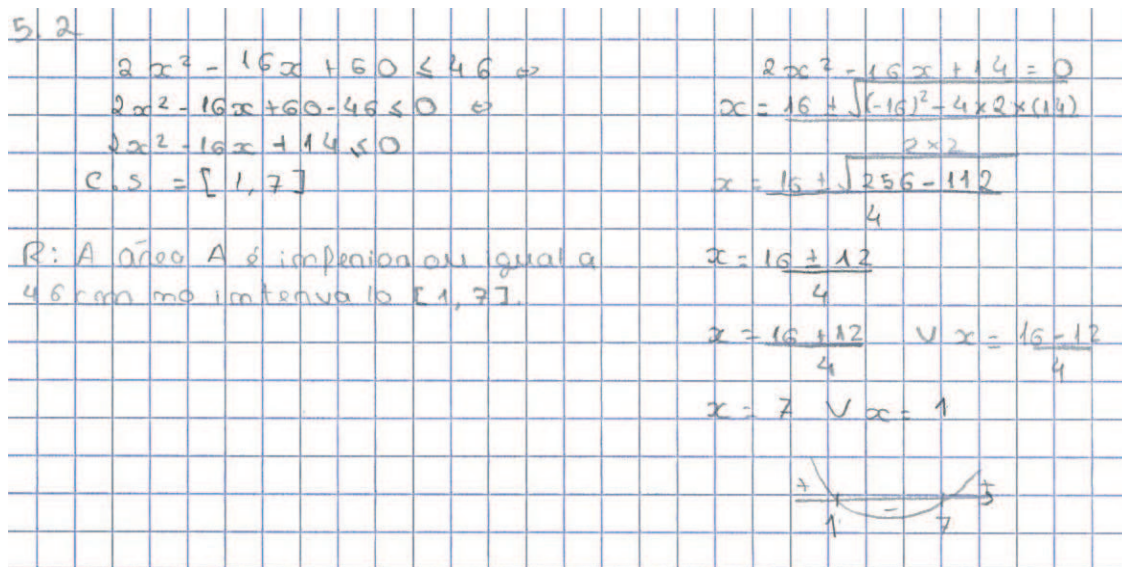 5.2
2x² - 16x + 60 ≤ 46 ⇔
2x² - 16x + 60 - 46 ≤ 0 ⇔
2x² - 16x + 14 ≤ 0
C.S = [1, 7]
R: A área A é inferior ou igual a
46 cm no intervalo [1, 7].
2x² - 16x + 14 = 0
x = 16 ± √(-16)² - 4 × 2 × (14)
2 × 2
x = 16 ± √256 - 112
4
x = 16 ± 12
4
x = 16 + 12 ∨ x = 16 - 12
4 4
x = 7 ∨ x = 1
+ - +
1 7